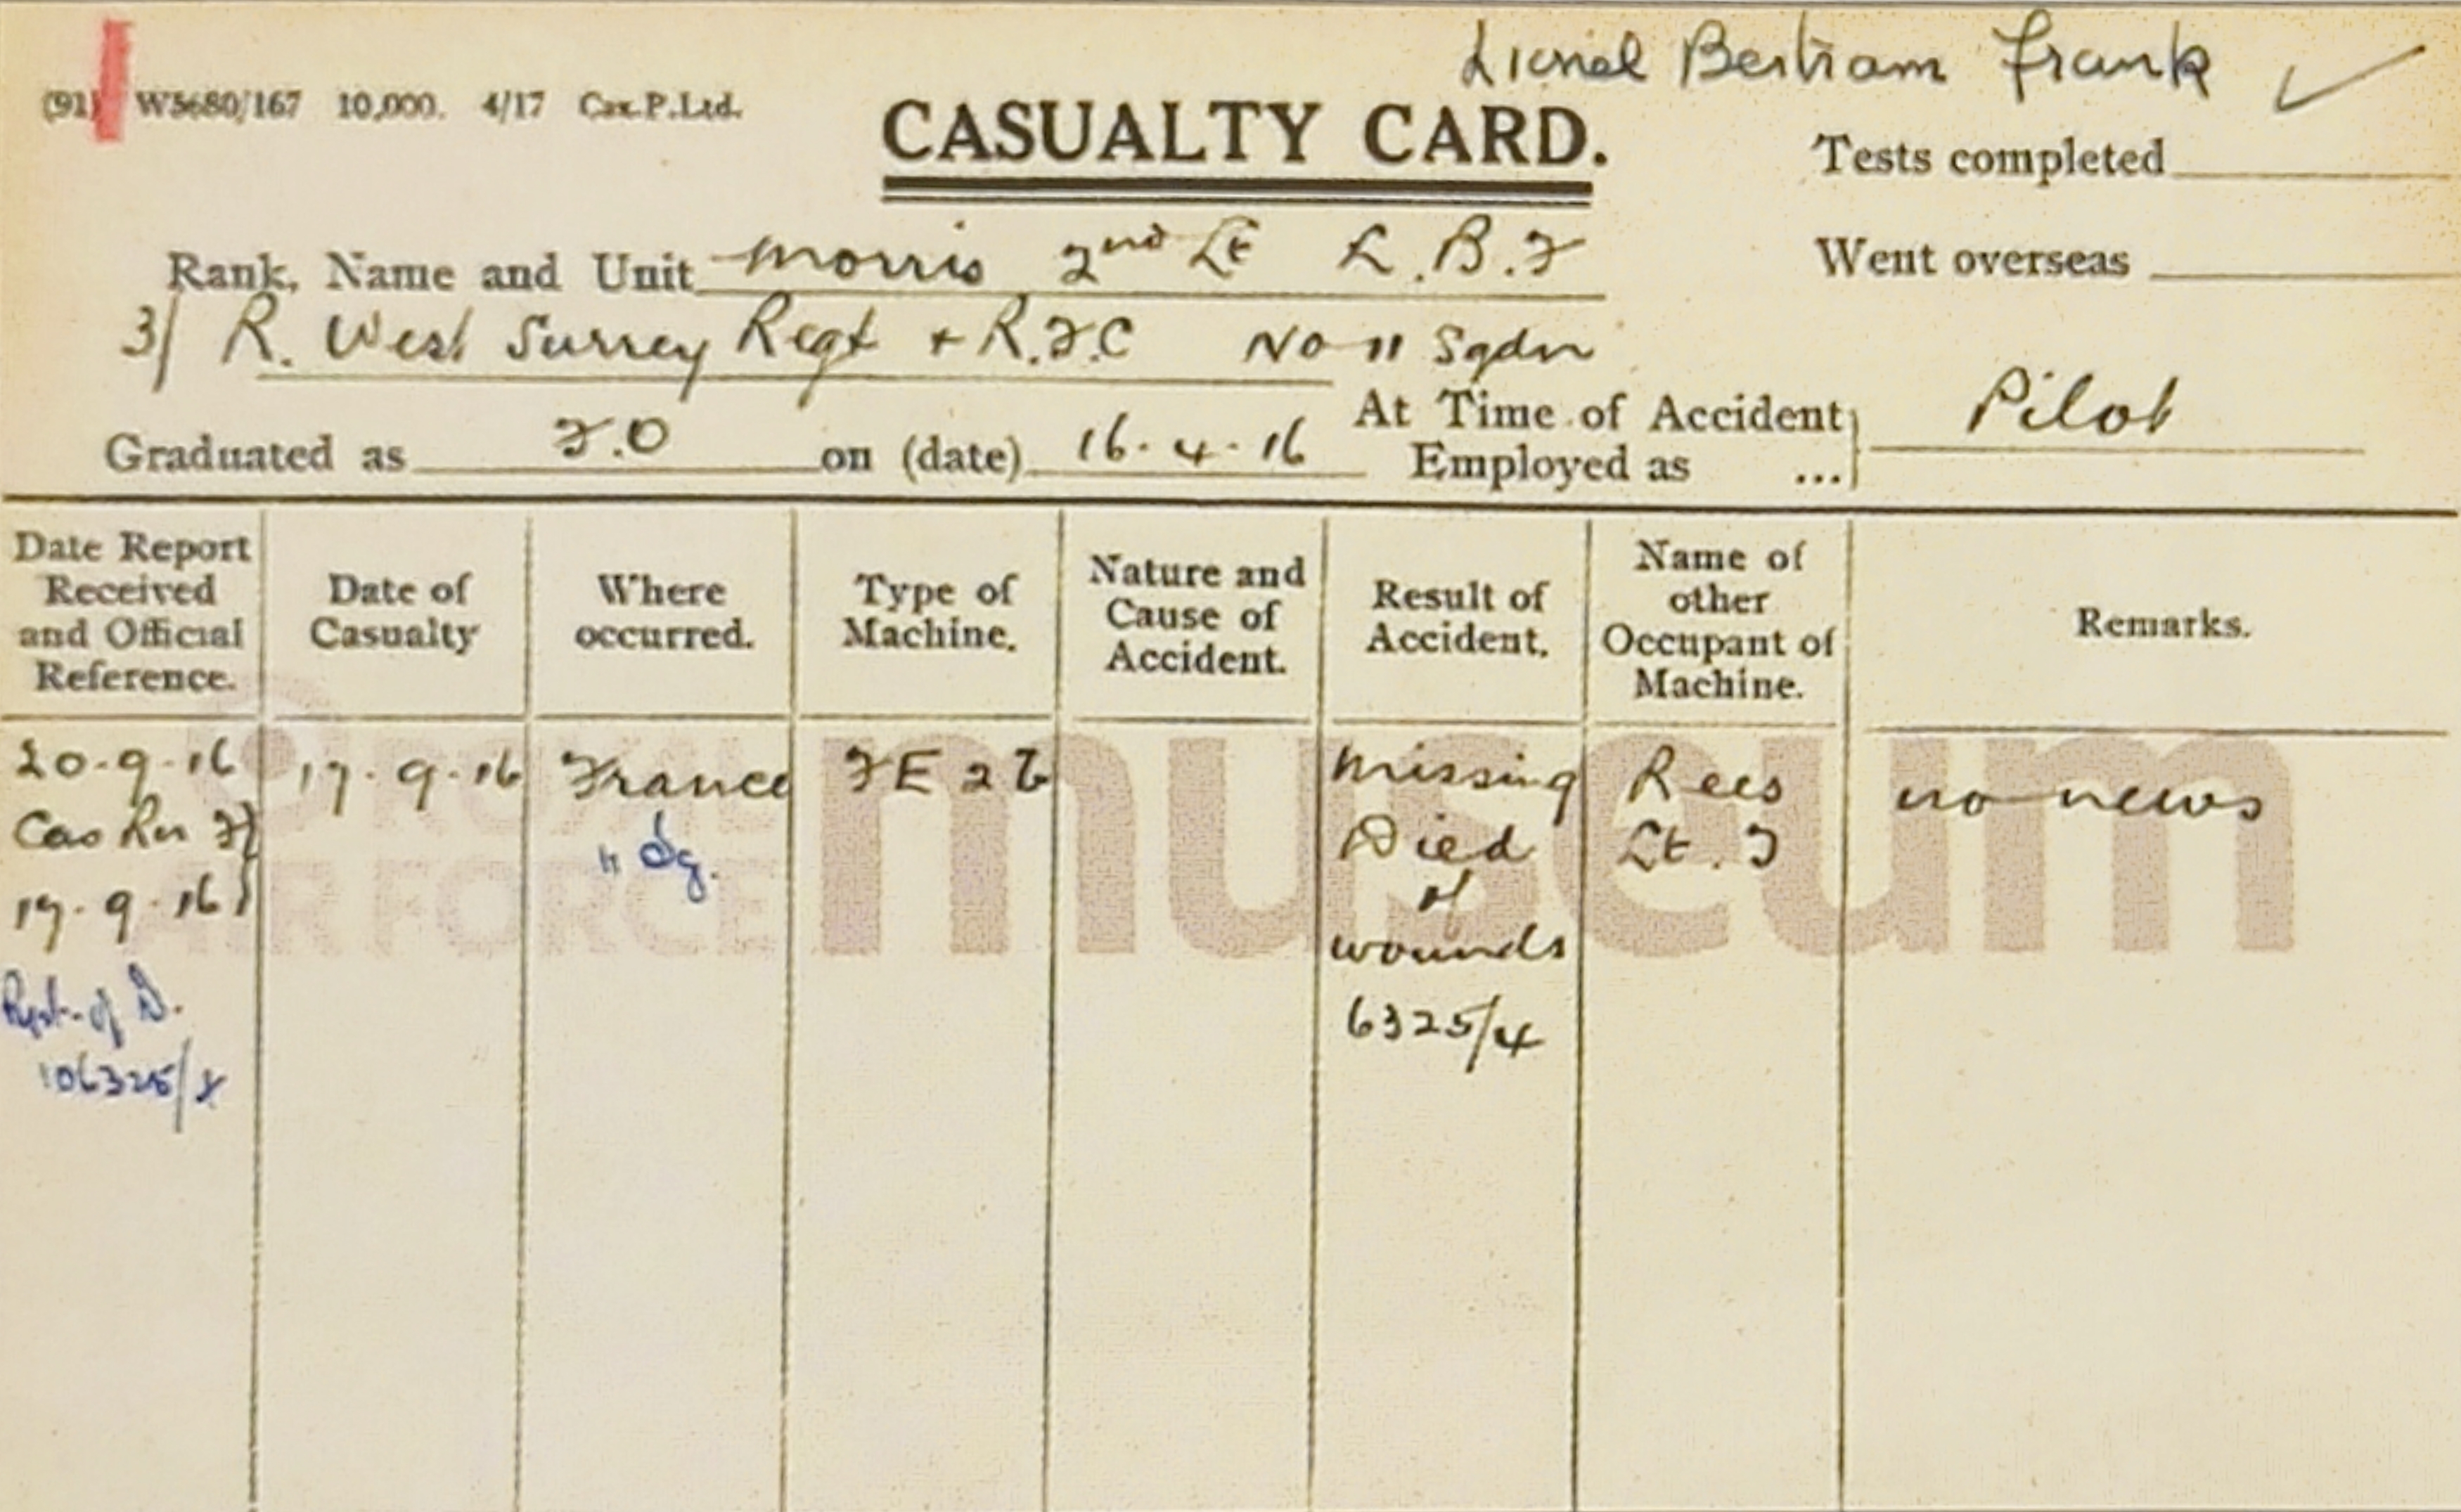 Lionel Bertram Frank
(91) W5680/167 10,000. 4/17 Cax.P.Ltd.
CASUALTY CARD.
Tests completed
Rank, Name and Unit Morris 2nd Lt L.B.F
Went overseas
3/ R. West Surrey Regt + R.F.C No 11 Sqdn
Graduated as F.O on (date) 16.4.16
At Time of Accident
Employed as ...
Pilot
Date Report
Received
and Official
Reference.
Date of
Casualty
Where
occurred.
Type of
Machine.
Nature and
Cause of
Accident.
Result of
Accident.
Name of
other
Occupant of
Machine.
Remarks.
20.9.16
Cas
17.9.16
Rpt. of D.
106325/
17.9.16
France
"
FE 2b
Missing
Died
of
wounds
6325/4
Rees
Lt. T
no news
ROYAL
AIR FORCE
museum